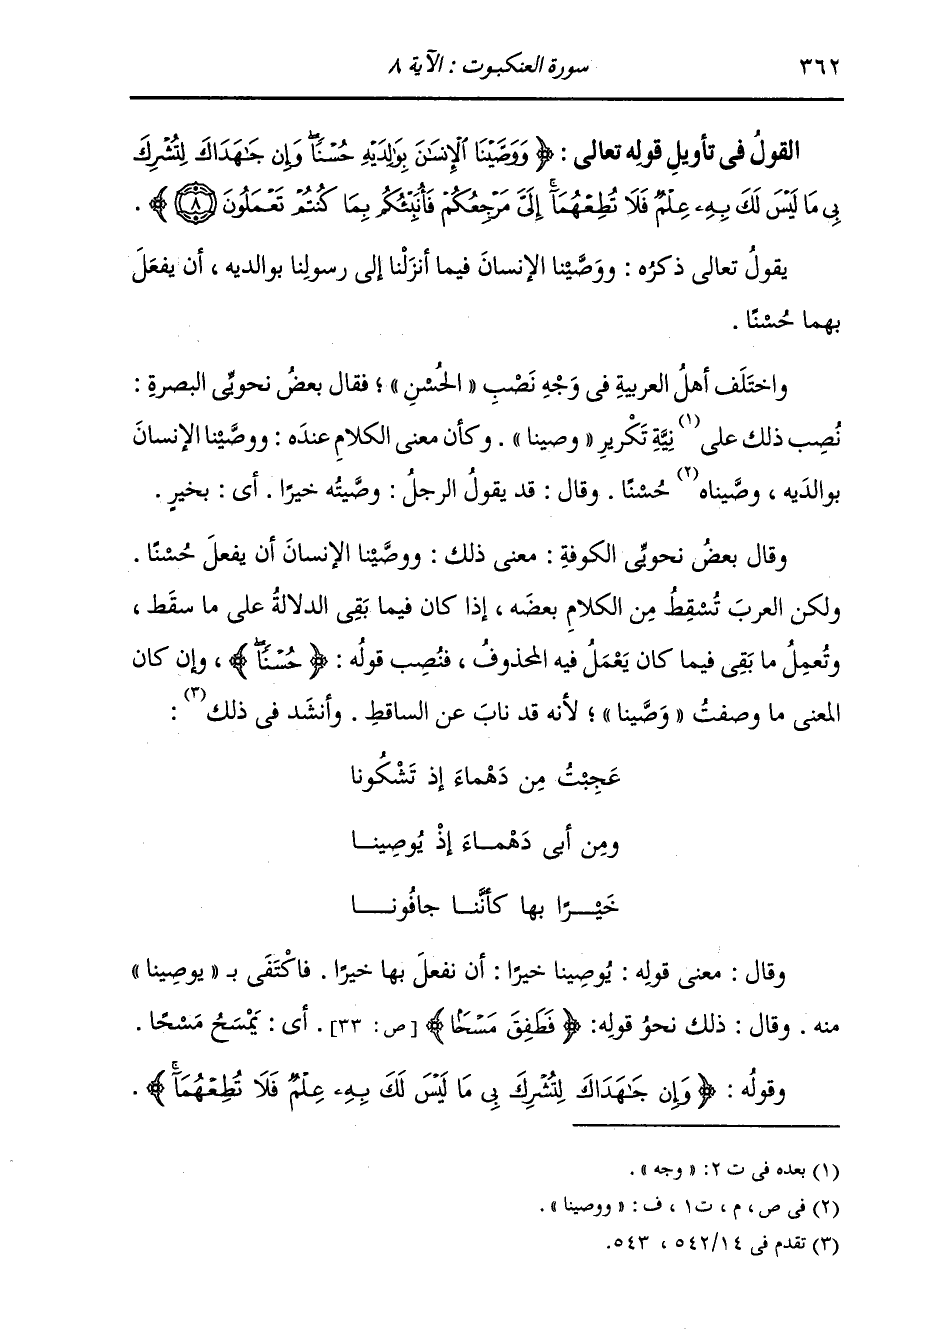 ٣٦٢ سورة العنكبوت : الآية ٨
القولُ فى تأويلِ قولِه تعالى : ﴿ وَوَصَّيْنَا ٱلْإِنسَٰنَ بِوَٰلِدَيْهِ حُسْنًاۖ وَإِن جَٰهَدَاكَ لِتُشْرِكَ
بِى مَا لَيْسَ لَكَ بِهِۦ عِلْمٌ فَلَا تُطِعْهُمَآۚ إِلَىَّ مَرْجِعُكُمْ فَأُنَبِّئُكُم بِمَا كُنتُمْ تَعْمَلُونَ ٨ ﴾ .
يقولُ تعالى ذكرُه : ووَصَّيْنا الإنسانَ فيما أنزَلْنا إلى رسولِنا بوالديه ، أن يفعَلَ
بهما حُسْنًا .
واختَلَف أهلُ العربيةِ فى وَجْهِ نَصْبِ « الحُسْنِ » ؛ فقال بعضُ نحويِّى البصرةِ :
نُصِب ذلك على (١) نِيَّةِ تَكْريرِ « وصينا » . وكأن معنى الكلامِ عندَه : ووصَّيْنا الإنسانَ
بوالدَيه ، وصَّيناه (٢) حُسْنًا . وقال : قد يقولُ الرجلُ : وصَّيتُه خيرًا . أى : بخيرٍ .
وقال بعضُ نحويِّى الكوفةِ : معنى ذلك : ووصَّيْنا الإنسانَ أن يفعلَ حُسْنًا .
ولكن العربَ تُسْقِطُ مِن الكلامِ بعضَه ، إذا كان فيما بَقِى الدلالةُ على ما سقَط ،
وتُعمِلُ ما بَقِى فيما كان يَعْمَلُ فيه المحذوفُ ، فنُصِب قولُه : ﴿ حُسْنًاۖ ﴾ ، وإن كان
المعنى ما وصفتُ « وَصَّينا » ؛ لأنه قد نابَ عن الساقطِ . وأنشَد فى ذلك (٣) :
عَجِبْتُ مِن دَهْماءَ إذ تَشْكُونا
ومِن أبى دَهْمــاءَ إذْ يُوصِينــا
خَيْــرًا بها كأنَّنــا جافُونــــا
وقال : معنى قولِه : يُوصِينا خيرًا : أن نفعلَ بها خيرًا . فاكْتَفَى بـ « يوصِينا »
منه . وقال : ذلك نحوُ قولِه: ﴿ فَطَفِقَ مَسْحًۢا ﴾ [ص: ٣٣] . أى : يَمْسَحُ مَسْحًا .
وقولُه : ﴿ وَإِن جَٰهَدَاكَ لِتُشْرِكَ بِى مَا لَيْسَ لَكَ بِهِۦ عِلْمٌ فَلَا تُطِعْهُمَآۚ ﴾ .
(١) بعده فى ت ٢: « وجه » .
(٢) فى ص ، م ، ت١ ، ف : « ووصينا » .
(٣) تقدم فى ٥٤٢/١٤ ، ٥٤٣.